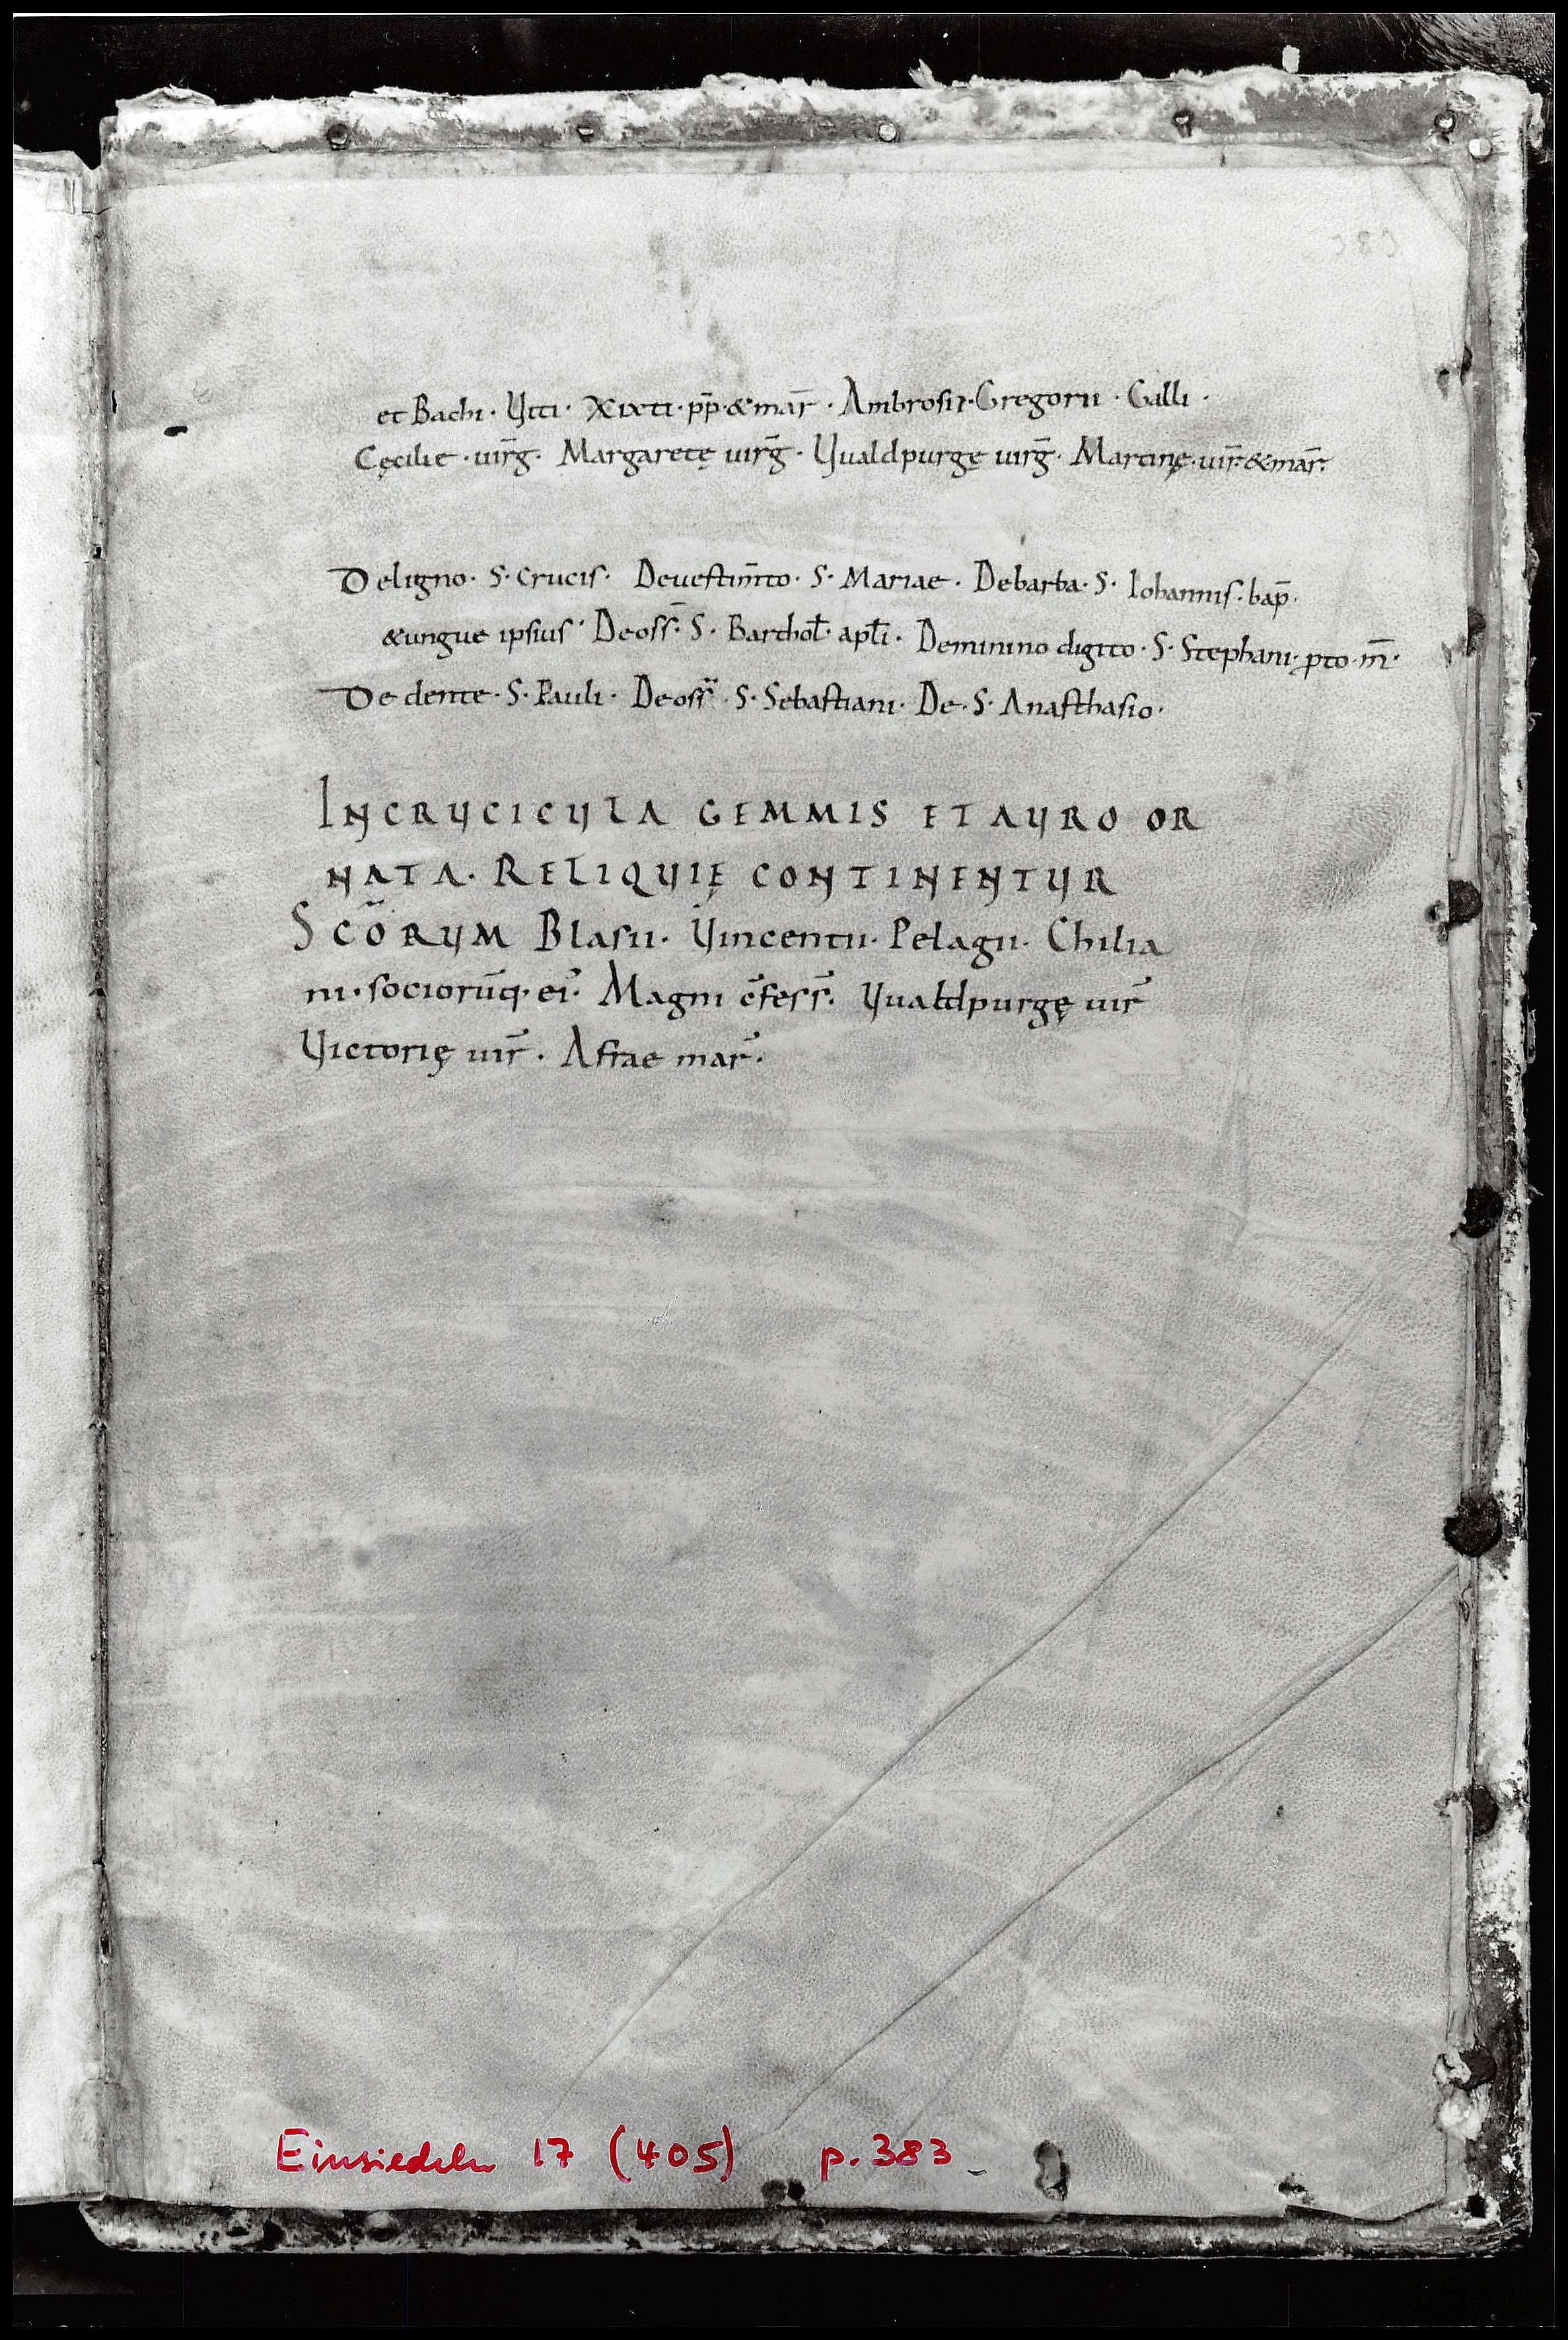 383
et Bachi · Viti · Xixti · pp̄ · & mar̄ · Ambrosii · Gregorii · Galli ·
Cęcilie · virḡ · Margaretę virḡ · Vualdpurgę virḡ · Martinę · vir̄ · & mar̄ ·
De ligno · S · Crucis · De vestim̄to · S · Mariae · De barba · S · Iohannis · bap̄ ·
& ungue ipsius · De oss̄ · S · Barthoł · apłi · De minino digito · S · Stephani · ꝓto · m̄ ·
De dente · S · Pauli · De oss · S · Sebastiani · De · S · Anasthasio ·
IN CRVCICVLA GEMMIS ET AVRO OR
NATA · RELIQVIĘ CONTINENTVR
SC̄ORVM Blasii · Vincentii · Pelagii · Chilia
ni · sociorūq · ei᷒ · Magni c̄fess̄ · Vualdpurgę vir̄
Victorię vir̄ · Afrae mar̄ ·
Einsiedeln 17 (405) p. 383